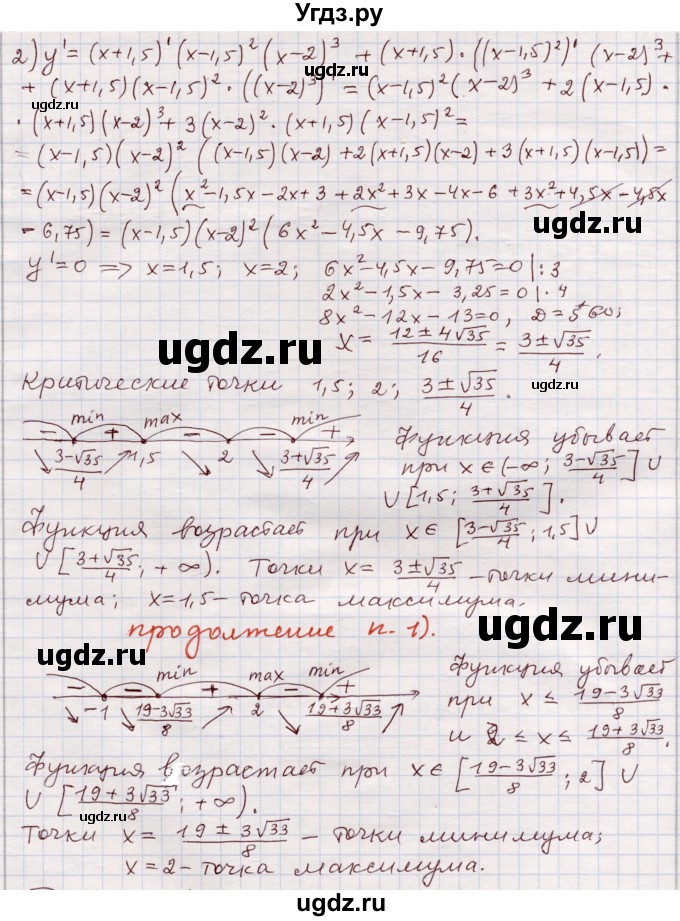 Угдз.ру
2) y' = (x+1,5)' (x-1,5)² (x-2)³ + (x+1,5) · ((x-1,5)²)' (x-2)³ +
+ (x+1,5)(x-1,5)² · ((x-2)³)' = (x-1,5)² (x-2)³ + 2(x-1,5) ·
· (x+1,5)(x-2)³ + 3(x-2)² · (x+1,5)(x-1,5)² =
= (x-1,5)(x-2)² ((x-1,5)(x-2) + 2(x+1,5)(x-2) + 3(x+1,5)(x-1,5)) =
= (x-1,5)(x-2)² (x² - 1,5x - 2x + 3 + 2x² + 3x - 4x - 6 + 3x² + 4,5x - 4,5x
- 6,75) = (x-1,5)(x-2)² (6x² - 4,5x - 9,75).
y' = 0 => x = 1,5; x = 2; 6x² - 4,5x - 9,75 = 0 |: 3
2x² - 1,5x - 3,25 = 0 | · 4
8x² - 12x - 13 = 0, D = 560;
x = (12 ± 4√35)/16 = (3 ± √35)/4.
Критические точки 1,5; 2; (3 ± √35)/4.
min max min
- + - - +
(3-√35)/4 1,5 2 (3+√35)/4
Функция убывает
при x ∈ (-∞; (3-√35)/4] ∪
∪ [1,5; (3+√35)/4].
Функция возрастает при x ∈ [(3-√35)/4; 1,5] ∪
∪ [(3+√35)/4; +∞). Точки x = (3 ± √35)/4 - точки мини-
мума; x = 1,5 - точка максимума.
продолжение п. 1).
min max min
- - + - +
-1 (19-3√33)/8 2 (19+3√33)/8
Функция убывает
при x ≤ (19-3√33)/8
и 2 ≤ x ≤ (19+3√33)/8.
Функция возрастает при x ∈ [(19-3√33)/8; 2] ∪
∪ [(19+3√33)/8; +∞).
Точки x = (19 ± 3√33)/8 - точки минимума;
x = 2 - точка максимума.
ugdz.ru
ugdz.ru
ugdz.ru
ugdz.ru
ugdz.ru
ugdz.ru
ugdz.ru
ugdz.ru
ugdz.ru
ugdz.ru
ugdz.ru
ugdz.ru
Угдз.ру